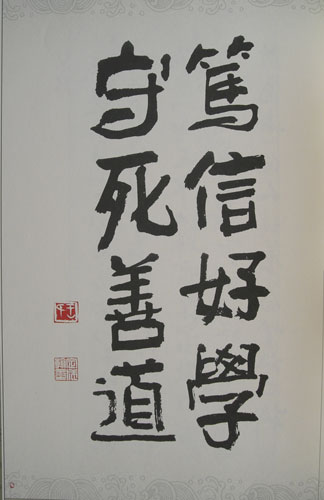 篤信好學
守死善道